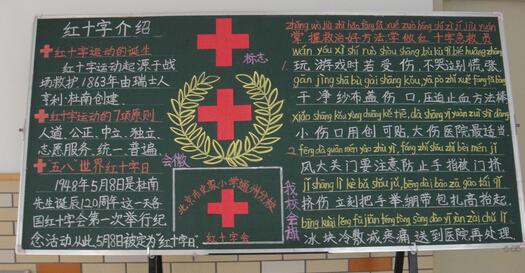 红十字介绍
红十字运动的诞生
红十字运动起源于战
场救护,1863年由瑞士人
亨利·杜南创建.
红十字运动的7项原则
人道、公正、中立、独立、
志愿服务、统一、普遍
五八世界红十字日
1948年5月8日是杜南
先生诞辰120周年这一天各
国红十字会第一次举行纪
念活动从此5月8日被定为红十字日.
标志
会徽
北京市史家小学通州分校
红十字会
我校会旗
zhǎng wò jiù zhì hǎo fāng fǎ xué zuò hóng shí zì jí jiù yuán
掌握救治好方法学做红十字急救员
wán yóu xì shí ruò shòu shāng bù kū bié huāng zhāng
玩游戏时若受伤,不哭泣别慌张,
gān jìng shā bù gài shāng kǒu, yā pò zhǐ xuè fāng fǎ bàng
干净纱布盖伤口,压迫止血方法棒
xiǎo shāng kǒu yòng chuāng kě tiē, dà shāng yī yuàn zuì shì dàng
小伤口用创可贴,大伤医院最适当.
2 fēng dà guān mén yào zhù yì, fáng zhǐ shǒu zhǐ bèi mén jǐ
风大关门要注意防止手指被门挤.
jǐ shāng lì kè bǎ shǒu jǔ, bēng dài bāo zā gāo tái qǐ
挤伤立刻把手举绷带包扎高抬起.
bīng kuài lěng fū jiǎn téng tòng sòng dào yī yuàn zài chǔ lǐ
冰块冷敷减疼痛,送到医院再处理.